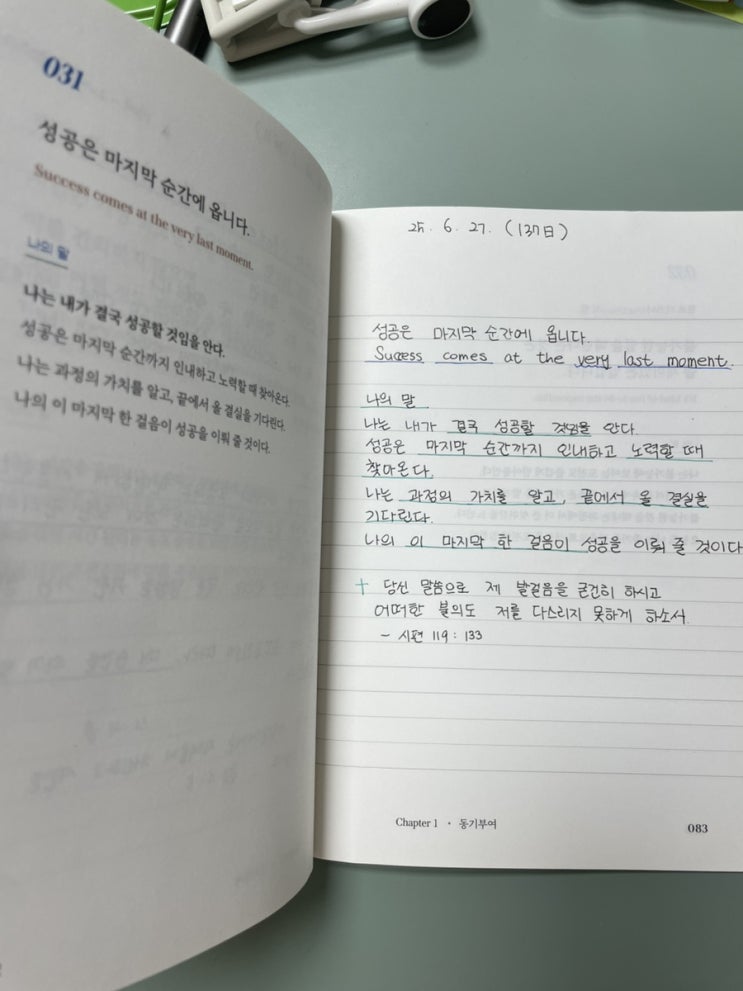 031
성공은 마지막 순간에 옵니다.
Success comes at the very last moment.
나의 말
나는 내가 결국 성공할 것임을 안다.
성공은 마지막 순간까지 인내하고 노력할 때 찾아온다.
나는 과정의 가치를 알고, 끝에서 올 결실을 기다린다.
나의 이 마지막 한 걸음이 성공을 이뤄 줄 것이다.
25. 6. 27. (137日)
성공은 마지막 순간에 옵니다.
Success comes at the very last moment.
나의 말
나는 내가 결국 성공할 것임을 안다.
성공은 마지막 순간까지 인내하고 노력할 때
찾아온다.
나는 과정의 가치를 알고, 끝에서 올 결실을
기다린다.
나의 이 마지막 한 걸음이 성공을 이뤄 줄 것이다
당신 말씀으로 제 발걸음을 굳건히 하시고
어떠한 불의도 저를 다스리지 못하게 하소서.
- 시편 119 : 133
Chapter 1 · 동기부여
083